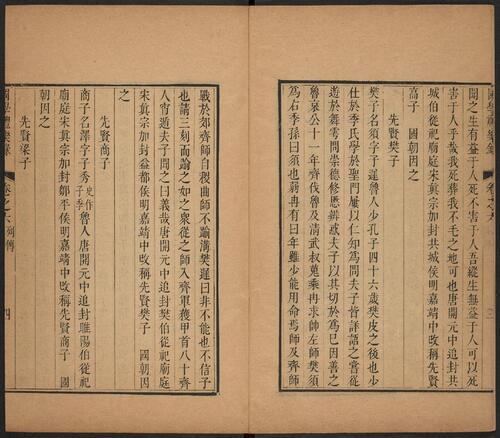 聞之生有益于人死不害于人吾縱生無益于人可以死
害于人乎哉我死葬我不毛之地可也唐開元中追封共
城伯從祀廟庭宋眞宗加封共城侯明嘉靖中改稱先賢
高子　國朝因之
先賢樊子
樊子名須字子遲魯人少孔子四十六歲樊皮之後也少
仕於季氏學於聖門屢以仁知爲問夫子皆詳語之嘗從
遊於舞雩問崇德修慝辨惑夫子以其切於爲已因善之
魯哀公十一年齊伐魯及清武叔蒐乘冉求帥左師樊須
爲右季孫曰須也弱冉有曰年雖少能用命焉師及齊師
戰於郊齊師自稷曲師不踰溝樊遲曰非不能也不信子
也請三刻而踰之如之衆從之師入齊軍獲甲首八十齊
人宵遁夫子聞之曰義哉唐開元中追封樊伯從祀廟庭
宋眞宗加封益都侯明嘉靖中改稱先賢樊子　國朝因
之
先賢商子
商子名澤字子秀史作子季魯人唐開元中追封睢陽伯從祀
廟庭宋眞宗加封鄒平侯明嘉靖中改稱先賢商子　國
朝因之
先賢梁子
國學禮樂錄　卷之六　列傳　四